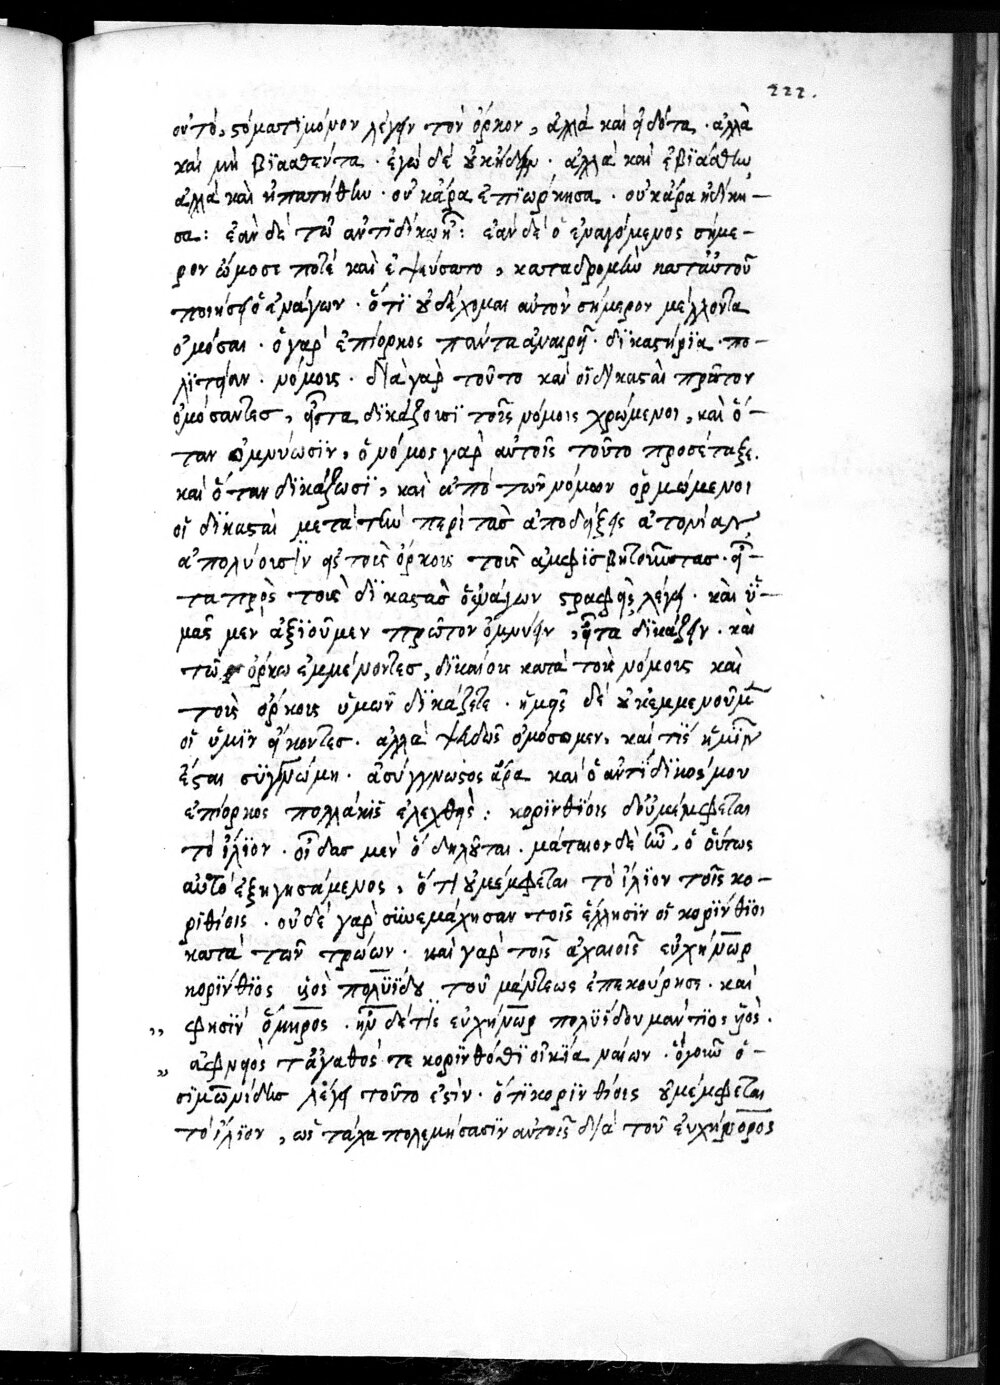 222.
οὐ τὸ, στόματι μόνον λέγειν τὸν ὅρκον, ἀλλὰ καὶ εἰδότα. ἀλλὰ
καὶ μὴ βϊασθέντα. ἐγὼ δὲ οὐκ ᾔδειν. ἀλλὰ καὶ ἐβϊάσθην
ἀλλὰ καὶ ἠπατήθην. οὐκ ἄρα ἐπϊώρκησα. οὐκ ἄρα ἠδίκη-
σα: ἐὰν δὲ τῶ ἀντιδίκω ἦ: ἐὰν δὲ ὁ ἐναγόμενος σήμε-
ρον ὤμοσέ ποτε καὶ ἐψεύσατο, καταδρομὴν κατ' αὐτοῦ
ποιήσει ὁ ἐνάγων. ὅτϊ οὐ δέχομαι αὐτὸν σήμερον μέλλοντα
ὀμόσαι. ὁ γὰρ ἐπίορκος πάντα ἀναιρεῖ. δϊκαστήρϊα. πο-
λϊτείαν. νόμους. διὰ γὰρ τοῦτο καὶ οἱ δϊκασταὶ πρῶτον
ὀμόσαντες, εἶτα δϊκάζουσϊ τοῖς νόμοις χρώμενοι, καὶ ὅ-
ταν ὀμνύωσϊν, ὁ νόμος γὰρ αὐτοῖς τοῦτο προσέταξε.
καὶ ὅταν δϊκάζωσϊ, καὶ ἀπὸ τῶν νόμων ὁρμώμενοι
οἱ δϊκασταὶ μετὰ τὴν περὶ τὰς ἀποδείξεις ἀτονίαν
ἀπολύουσϊν εἰς τοὺς ὅρκους τοὺς ἀμφϊσβητοῦντας. εἶ-
τα πρὸς τοὺς δϊκαστὰς ὁ ἐνάγων στραφεὶς λέγει. καὶ ὑ-
μᾶς μὲν ἀξϊοῦμεν πρῶτον ὀμνύειν, εἶτα δϊκάζειν. καὶ
τῶ ὅρκω ἐμμένοντες, δϊκαίους κατὰ τοὺς νόμους καὶ
τοὺς ὅρκους ὑμῶν δϊκάζετε. ἡμεῖς δὲ οὐκ ἐμμενοῦμεν
οἱ ὑμῖν εἴκοντες. ἀλλὰ ψευδῶς ὀμόσομεν, καὶ τίς ἡμῖν
ἔσται συγγνώμη. ἀσύγγνωστος ἄρα καὶ ὁ ἀντίδϊκός μου
ἐπίορκος πολλάκϊς ἐλεγχθείς: κορϊνθίοις δ' οὐ μέμφεται
τὸ ἴλϊον. οἶδας μὲν ὃ δηλοῦται. μάταιος δὲ ἦν, ὁ οὕτως
αὐτὸ ἐξηγησάμενος, ὅτι οὐ μέμφεται τὸ ἴλϊον τοῖς κο-
ρϊθίοις. οὐδὲ γὰρ συνεμάχησαν τοῖς ἕλλησϊν οἱ κορϊνθϊοι
κατὰ τῶν τρώων. καὶ γὰρ τοῖς ἀχαιοῖς εὐχήνωρ
κορίνθϊος υἱὸς πολυΐδου τοῦ μάντεως ἐπεκούρησε. καὶ
φησὶν ὅμηρος. ἦν δέ τις εὐχήνωρ πολυΐδου μάντϊος υἱὸς.
ἀφνειός τ' ἀγαθός τε κορϊνθόθϊ οἰκία ναίων. ὅλον ὃ ὁ-
σϊμωνίδης λέγει τοῦτό ἐστϊν. ὅτϊ κορϊνθίοις οὐ μέμφεται
τὸ ἴλϊον, ὡς τάχα πολεμήσασϊν αὐτοῖς διὰ τοῦ εὐχήνορος